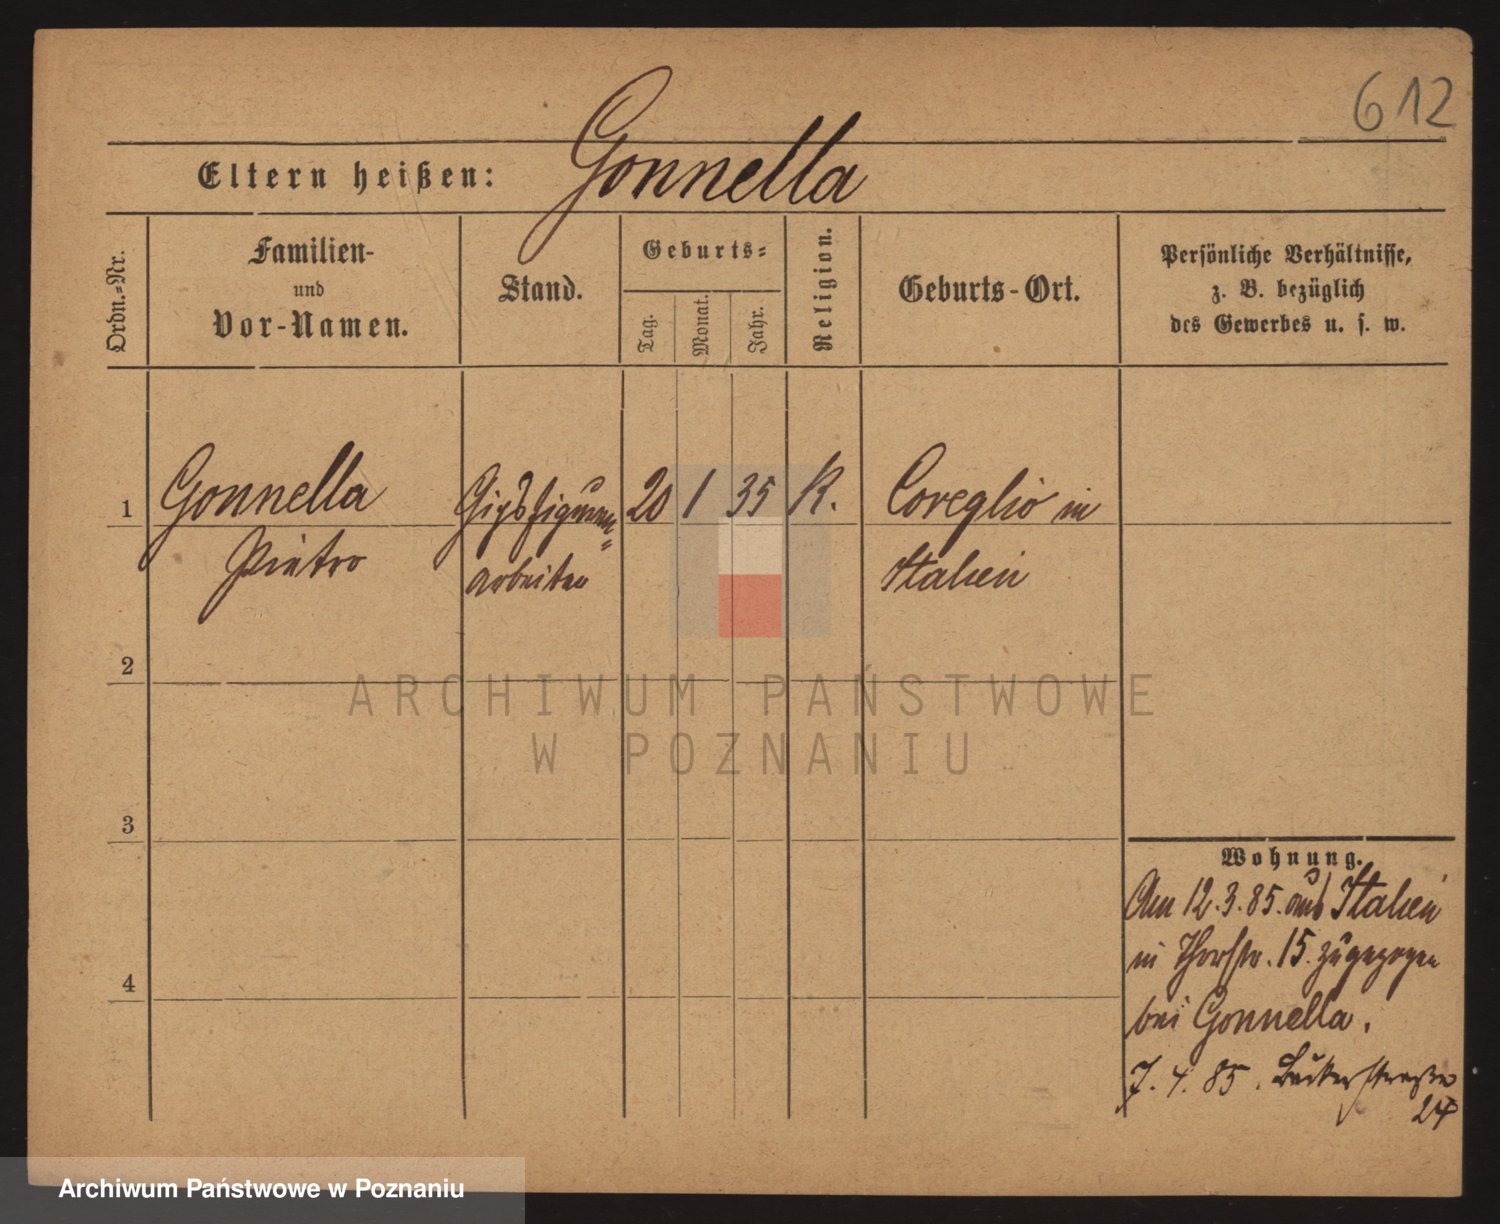 612
Eltern heißen: Gonnella
Ordn.-Nr.
Familien-
und
Vor-Namen.
Stand.
Geburts-
Tag.
Monat.
Jahr.
Religion.
Geburts-Ort.
Persönliche Verhältnisse,
z. B. bezüglich
des Gewerbes u. s. w.
1 Gonnella Gipsfiguren- 20 1 35 K. Coreglio in
Pietro arbeiter Italien
2
ARCHIWUM PAŃSTWOWE
W POZNANIU
3
Wohnung.
Am 12.3.85. aus Italien
4
in Thorstr. 15. zugezogen
bei Gonnella.
7. 4. 85. Bäckerstraße
24
Archiwum Państwowe w Poznaniu